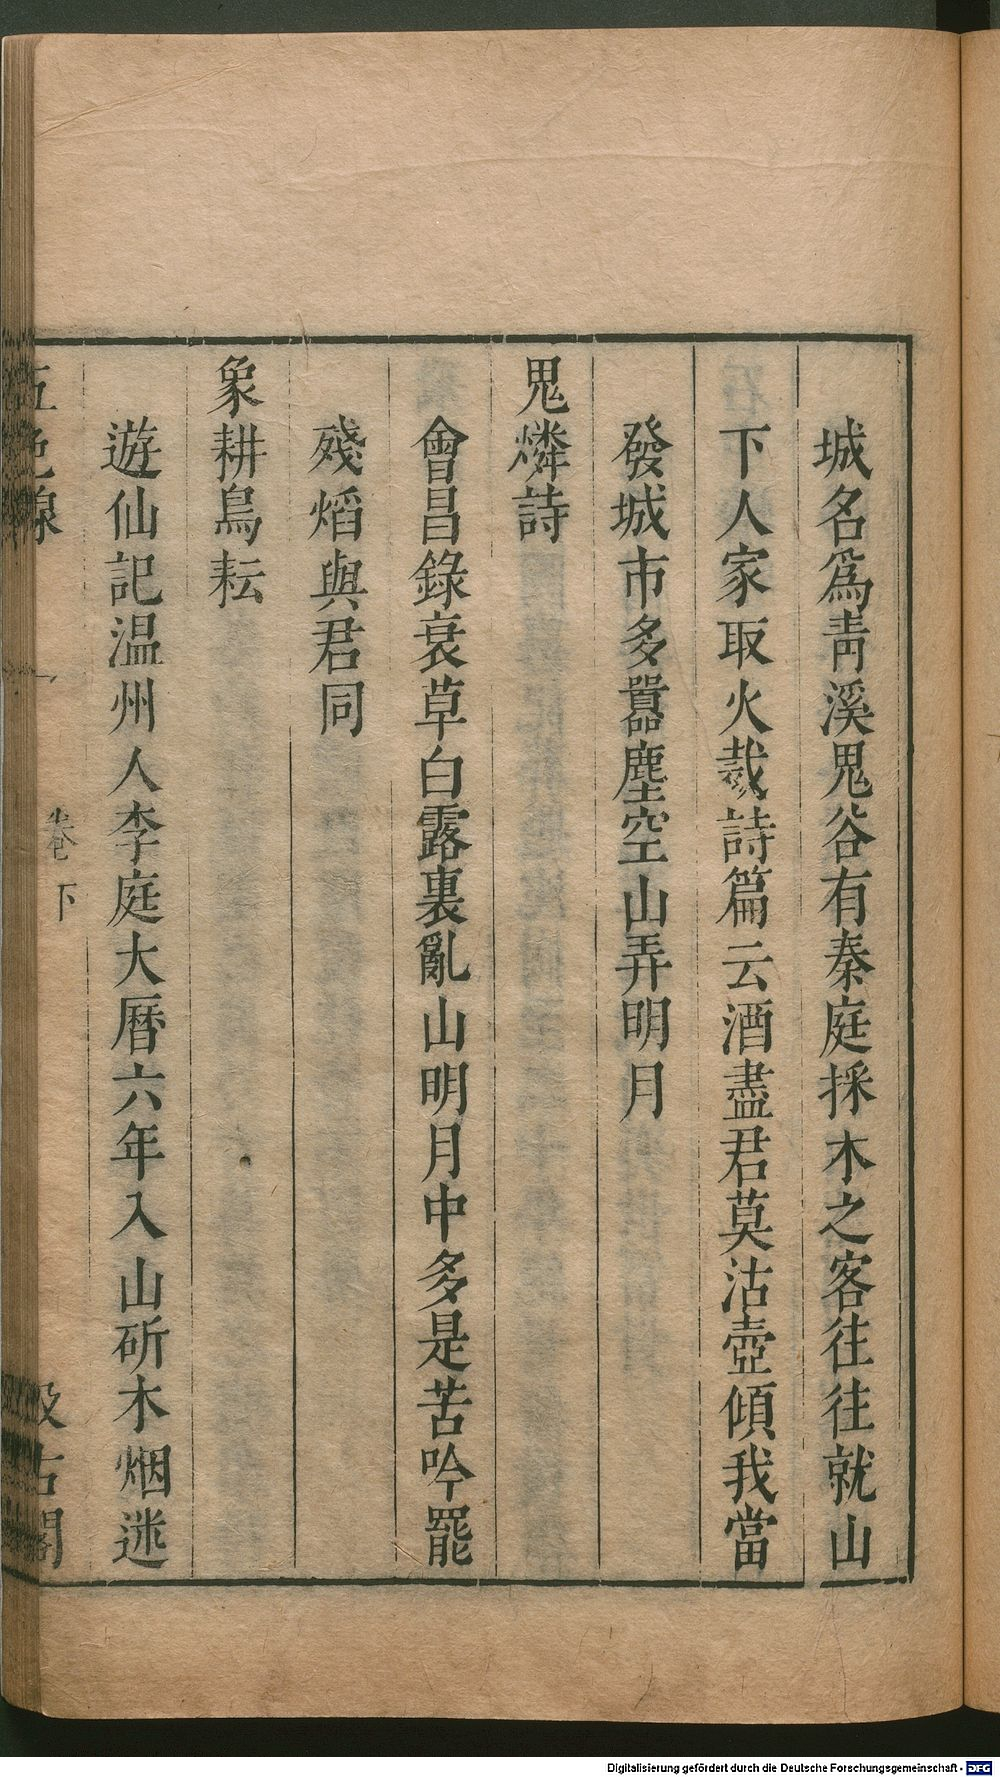 城名爲靑溪鬼谷有秦庭採木之客往往就山
下人家取火裁詩篇云酒盡君莫沽壺傾我當
發城市多囂塵空山弄明月
鬼燐詩
會昌錄衰草白露裏亂山明月中多是苦吟罷
殘熖與君同
象耕鳥耘
遊仙記温州人李庭大曆六年入山斫木烟迷
五色線 卷下 汲古閣
Digitalisierung gefördert durch die Deutsche Forschungsgemeinschaft - DFG